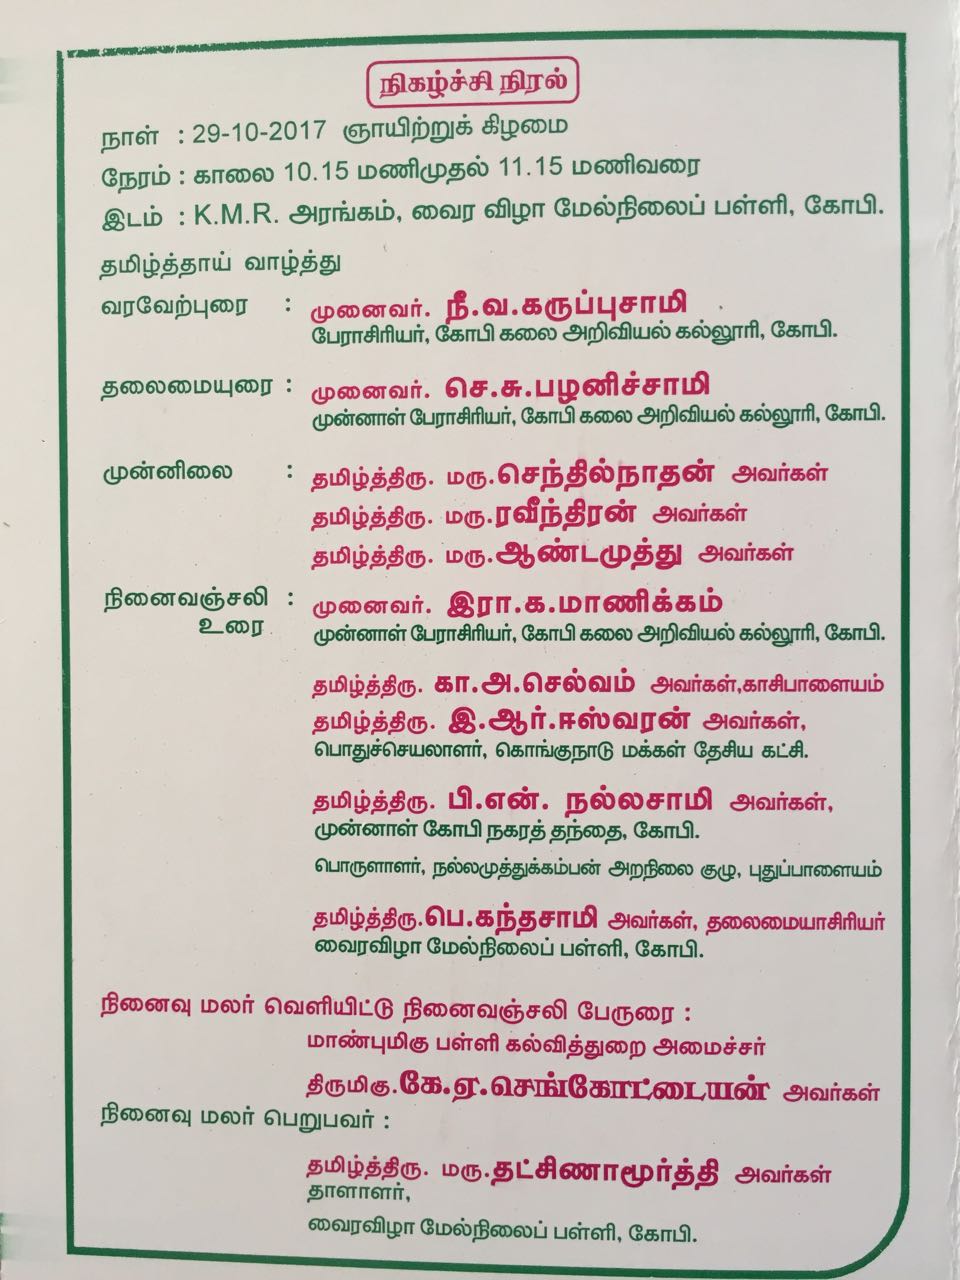 நிகழ்ச்சி நிரல்
நாள் : 29-10-2017 ஞாயிற்றுக் கிழமை
நேரம் : காலை 10.15 மணிமுதல் 11.15 மணிவரை
இடம் : K.M.R. அரங்கம், வைர விழா மேல்நிலைப் பள்ளி, கோபி.
தமிழ்த்தாய் வாழ்த்து
வரவேற்புரை : முனைவர். நீ.வ.கருப்புசாமி
பேராசிரியர், கோபி கலை அறிவியல் கல்லூரி, கோபி.
தலைமையுரை : முனைவர். செ.சு.பழனிச்சாமி
முன்னாள் பேராசிரியர், கோபி கலை அறிவியல் கல்லூரி, கோபி.
முன்னிலை : தமிழ்த்திரு. மரு.செந்தில்நாதன் அவர்கள்
தமிழ்த்திரு. மரு.ரவீந்திரன் அவர்கள்
தமிழ்த்திரு. மரு.ஆண்டமுத்து அவர்கள்
நினைவஞ்சலி : முனைவர். இரா.க.மாணிக்கம்
உரை முன்னாள் பேராசிரியர், கோபி கலை அறிவியல் கல்லூரி, கோபி.
தமிழ்த்திரு. கா.அ.செல்வம் அவர்கள்,காசிபாளையம்
தமிழ்த்திரு. இ.ஆர்.ஈஸ்வரன் அவர்கள்,
பொதுச்செயலாளர், கொங்குநாடு மக்கள் தேசிய கட்சி.
தமிழ்த்திரு. பி.என். நல்லசாமி அவர்கள்,
முன்னாள் கோபி நகரத் தந்தை, கோபி.
பொருளாளர், நல்லமுத்துக்கம்பன் அறநிலை குழு, புதுப்பாளையம்
தமிழ்த்திரு.பெ.கந்தசாமி அவர்கள், தலைமையாசிரியர்
வைரவிழா மேல்நிலைப் பள்ளி, கோபி.
நினைவு மலர் வெளியிட்டு நினைவஞ்சலி பேருரை :
மாண்புமிகு பள்ளி கல்வித்துறை அமைச்சர்
திருமிகு.கே.ஏ.செங்கோட்டையன் அவர்கள்
நினைவு மலர் பெறுபவர் :
தமிழ்த்திரு. மரு.தட்சிணாமூர்த்தி அவர்கள்
தாளாளர்,
வைரவிழா மேல்நிலைப் பள்ளி, கோபி.